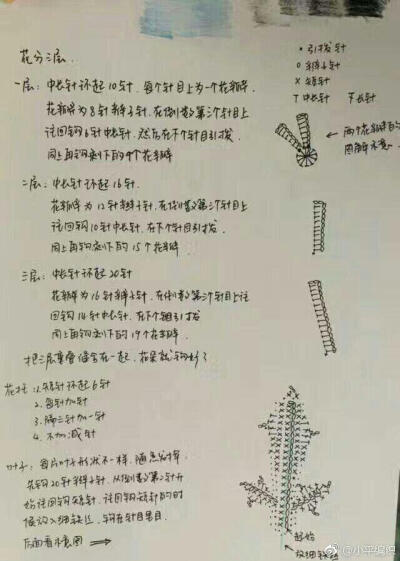 花分三层.
一层: 中长针环起10针. 每个针目上为一个花瓣
花瓣为8针辫子针. 在倒数第三个针目上
往回钩6针中长针. 然后在下个针目引拔
同上再钩剩下的9个花瓣
二层: 中长针环起16针.
花瓣为12针辫子针. 在倒数第三个针目上
往回钩10针中长针. 在下个针目引拔
同上再钩剩下的15个花瓣
三层: 中长针环起20针
花瓣为16针辫子针. 在倒数第三个针目上往
回钩14针中长针. 在下个针目引拔
同上再钩剩下的19个花瓣.
把三层重叠缝合在一起. 花朵就钩好了
• 引拔针
O 辫子针
X 短针
T 中长针 长针
← 两个花瓣的
图解示意
花托: 1. 短针环起6针
2. 每针加针
3. 隔三针加一针
4. 不加减针
叶子: 每片叶子形状不一样. 随意发挥
先钩20针辫子针. 从倒数第2针开
始往回钩短针. 往回钩短针的时
候放入细铁丝. 钩在针目里
后面看示意图 →
起始
放细铁丝
@小平编织